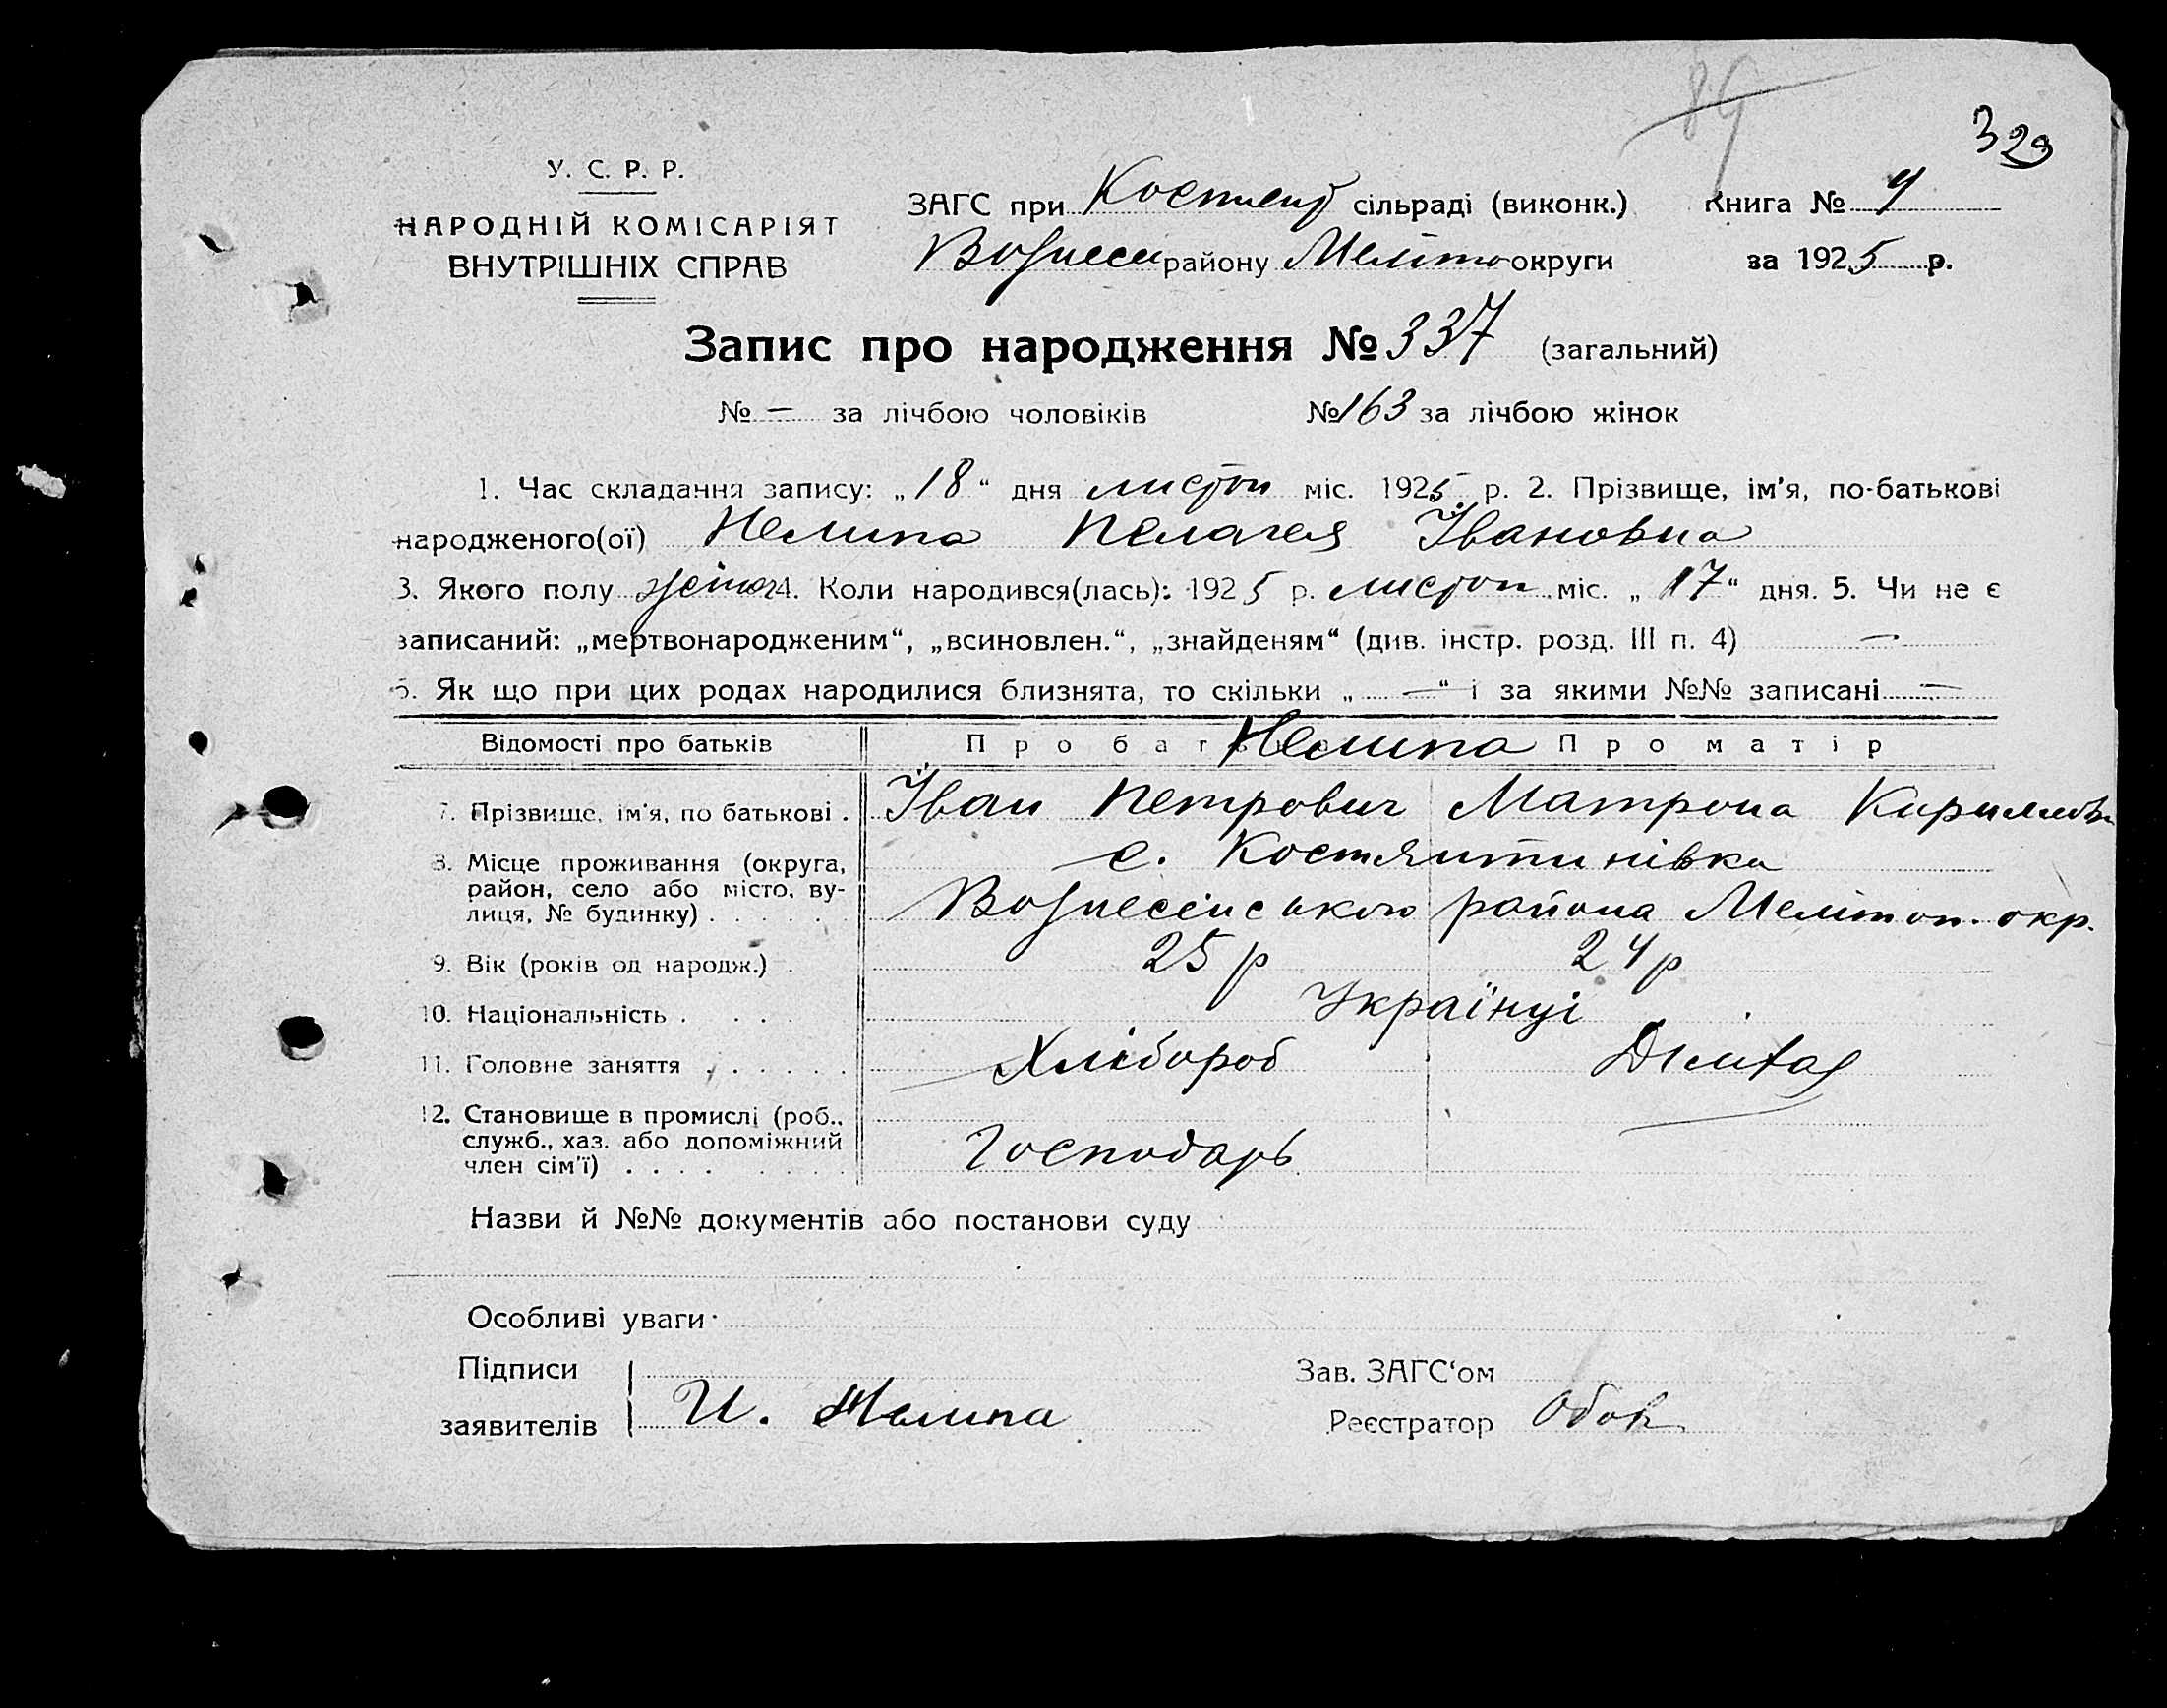 89
329
У. С. Р. Р.
НАРОДНІЙ КОМІСАРІЯТ
ВНУТРІШНІХ СПРАВ
ЗАГС при сільраді (виконк.) Книга № 4
району Меліто округи за 1925 р.
Запис про народження № 337 (загальний)
№ — за лічбою чоловіків № 163 за лічбою жінок
1. Час складання запису: „18“ дня листоп міс. 1925 р. 2. Прізвище, ім'я, по-батькові
народженого(ої) Нелипа Пелагея Івановна
3. Якого полу 4. Коли народився(лась): 1925 р. листоп міс. „17“ дня. 5. Чи не є
записаний: „мертвонародженим“, „всиновлен.“, „знайденям“ (див. інстр. розд. III п. 4) —
6. Як що при цих родах народилися близнята, то скільки „—“ і за якими №№ записані —
Відомості про батьків Про батька Нелипа Про матір
7. Прізвище, ім'я, по батькові . Іван Петрович Матрона
8. Місце проживання (округа, с. Костянтинівка
район, село або місто, ву-
лиця, № будинку) . . . . . Вознесенською района Мелітоп. окр.
9. Вік (років од народж.) . 25 р 24 р
10. Національність . . . . Українці
11. Головне заняття . . . . . . Хлібороб
12. Становище в промислі (роб.,
служб., хаз. або допоміжний
член сім'ї) . . . . . . . . Господарь
Назви й №№ документів або постанови суду
Особливі уваги
Підписи Зав. ЗАГС'ом
заявителів И. Нелипа Реєстратор